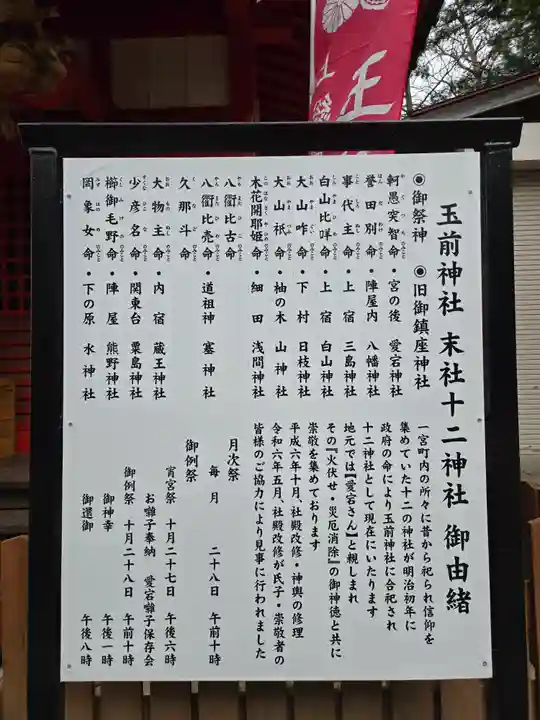 玉前神社 末社十二神社 御由緒
一宮町内の所々に昔から祀られ信仰を
集めていた十二の神社が明治初年に
政府の命により玉前神社に合祀され
十二神社として現在にいたります
地元では【愛宕さん】と親しまれ
その『火伏せ・災厄消除』の御神徳と共に
崇敬を集めております
平成六年十月、社殿改修・神輿の修理
令和六年五月、社殿改修が氏子・崇敬者の
皆様のご協力により見事に行われました
◉御祭神 ◉旧御鎮座神社
軻愚突智命・宮の後 愛宕神社
誉田別命・陣屋内 八幡神社
事代主命・上宿 三島神社
白山比咩命・上宿 白山神社
大山咋命・下村 日枝神社
大山祇命・柚の木 山神社
木花開耶姫命・細田 浅間神社
八衢比古命
八衢比売命・道祖神 塞神社
久那斗命
大物主命・内宿 蔵王神社
少彦名命・関東台 粟島神社
櫛御毛野命・陣屋 熊野神社
罔象女命・下の原 水神社
月次祭
毎月 二十八日 午前十時
御例祭
宵宮祭 十月二十七日 午後六時
お囃子奉納 愛宕囃子保存会
御例祭 十月二十八日 午前十時
御神幸 午後一時
御還御 午後八時
王